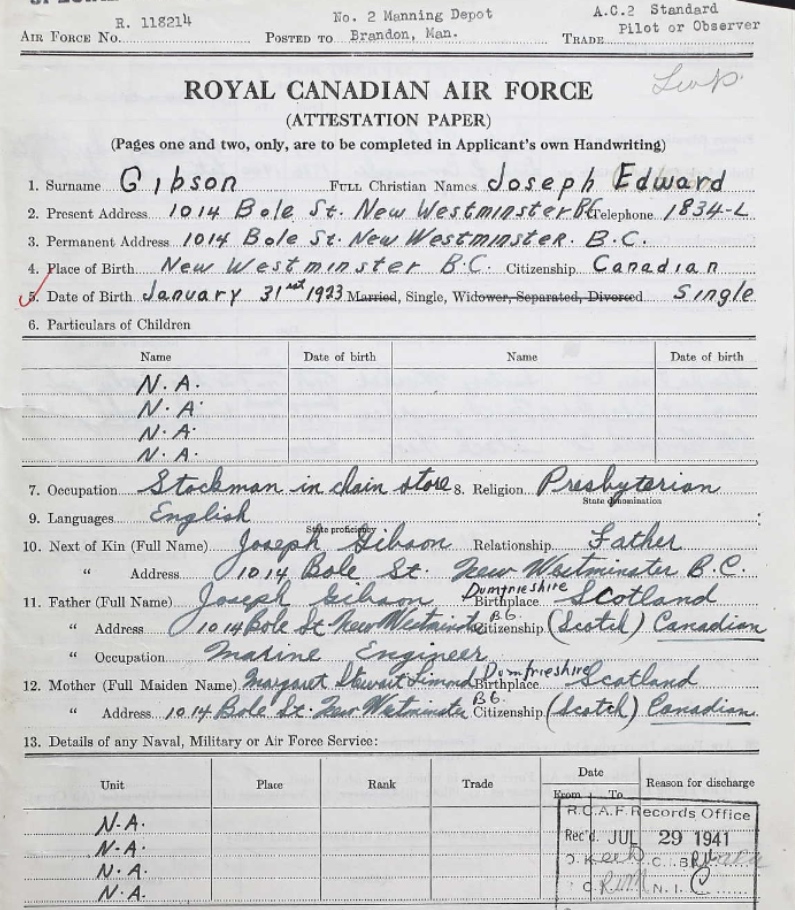 R. 118214 No. 2 Manning Depot A.C.2 Standard
AIR FORCE NO. POSTED TO Brandon, Man. TRADE Pilot or Observer
ROYAL CANADIAN AIR FORCE
(ATTESTATION PAPER)
(Pages one and two, only, are to be completed in Applicant's own Handwriting)
1. Surname Gibson FULL Christian Names Joseph Edward
2. Present Address 1014 Bole St. New Westminster BC Telephone 1834-L
3. Permanent Address 1014 Bole St. New Westminster. B.C.
4. Place of Birth New Westminster B.C. Citizenship Canadian
5. Date of Birth January 31st 1923 Married, Single, Widower, Separated, Divorced Single
6. Particulars of Children
Name Date of birth Name Date of birth
N.A.
N.A.
N.A.
N.A.
7. Occupation Stockman in chain store 8. Religion Presbyterian
State denomination
9. Languages English
State proficiency
10. Next of Kin (Full Name) Joseph Gibson Relationship Father
" Address 1014 Bole St. New Westminster B.C.
11. Father (Full Name) Joseph Gibson Birthplace Dumfrieshire Scotland
" Address 1014 Bole St New Westminster B.C. Citizenship (Scotch) Canadian
" Occupation Marine Engineer
12. Mother (Full Maiden Name) Margaret Stewart Birthplace Dumfrieshire Scotland
" Address 1014 Bole St. New Westminster B.C. Citizenship (Scotch) Canadian
13. Details of any Naval, Military or Air Force Service:
Unit Place Rank Trade Date Reason for discharge
From To
N.A.
N.A.
N.A.
N.A.
R.C.A.F. Records Office
Rec'd. JUL 29 1941
C. B.
N.I.C.